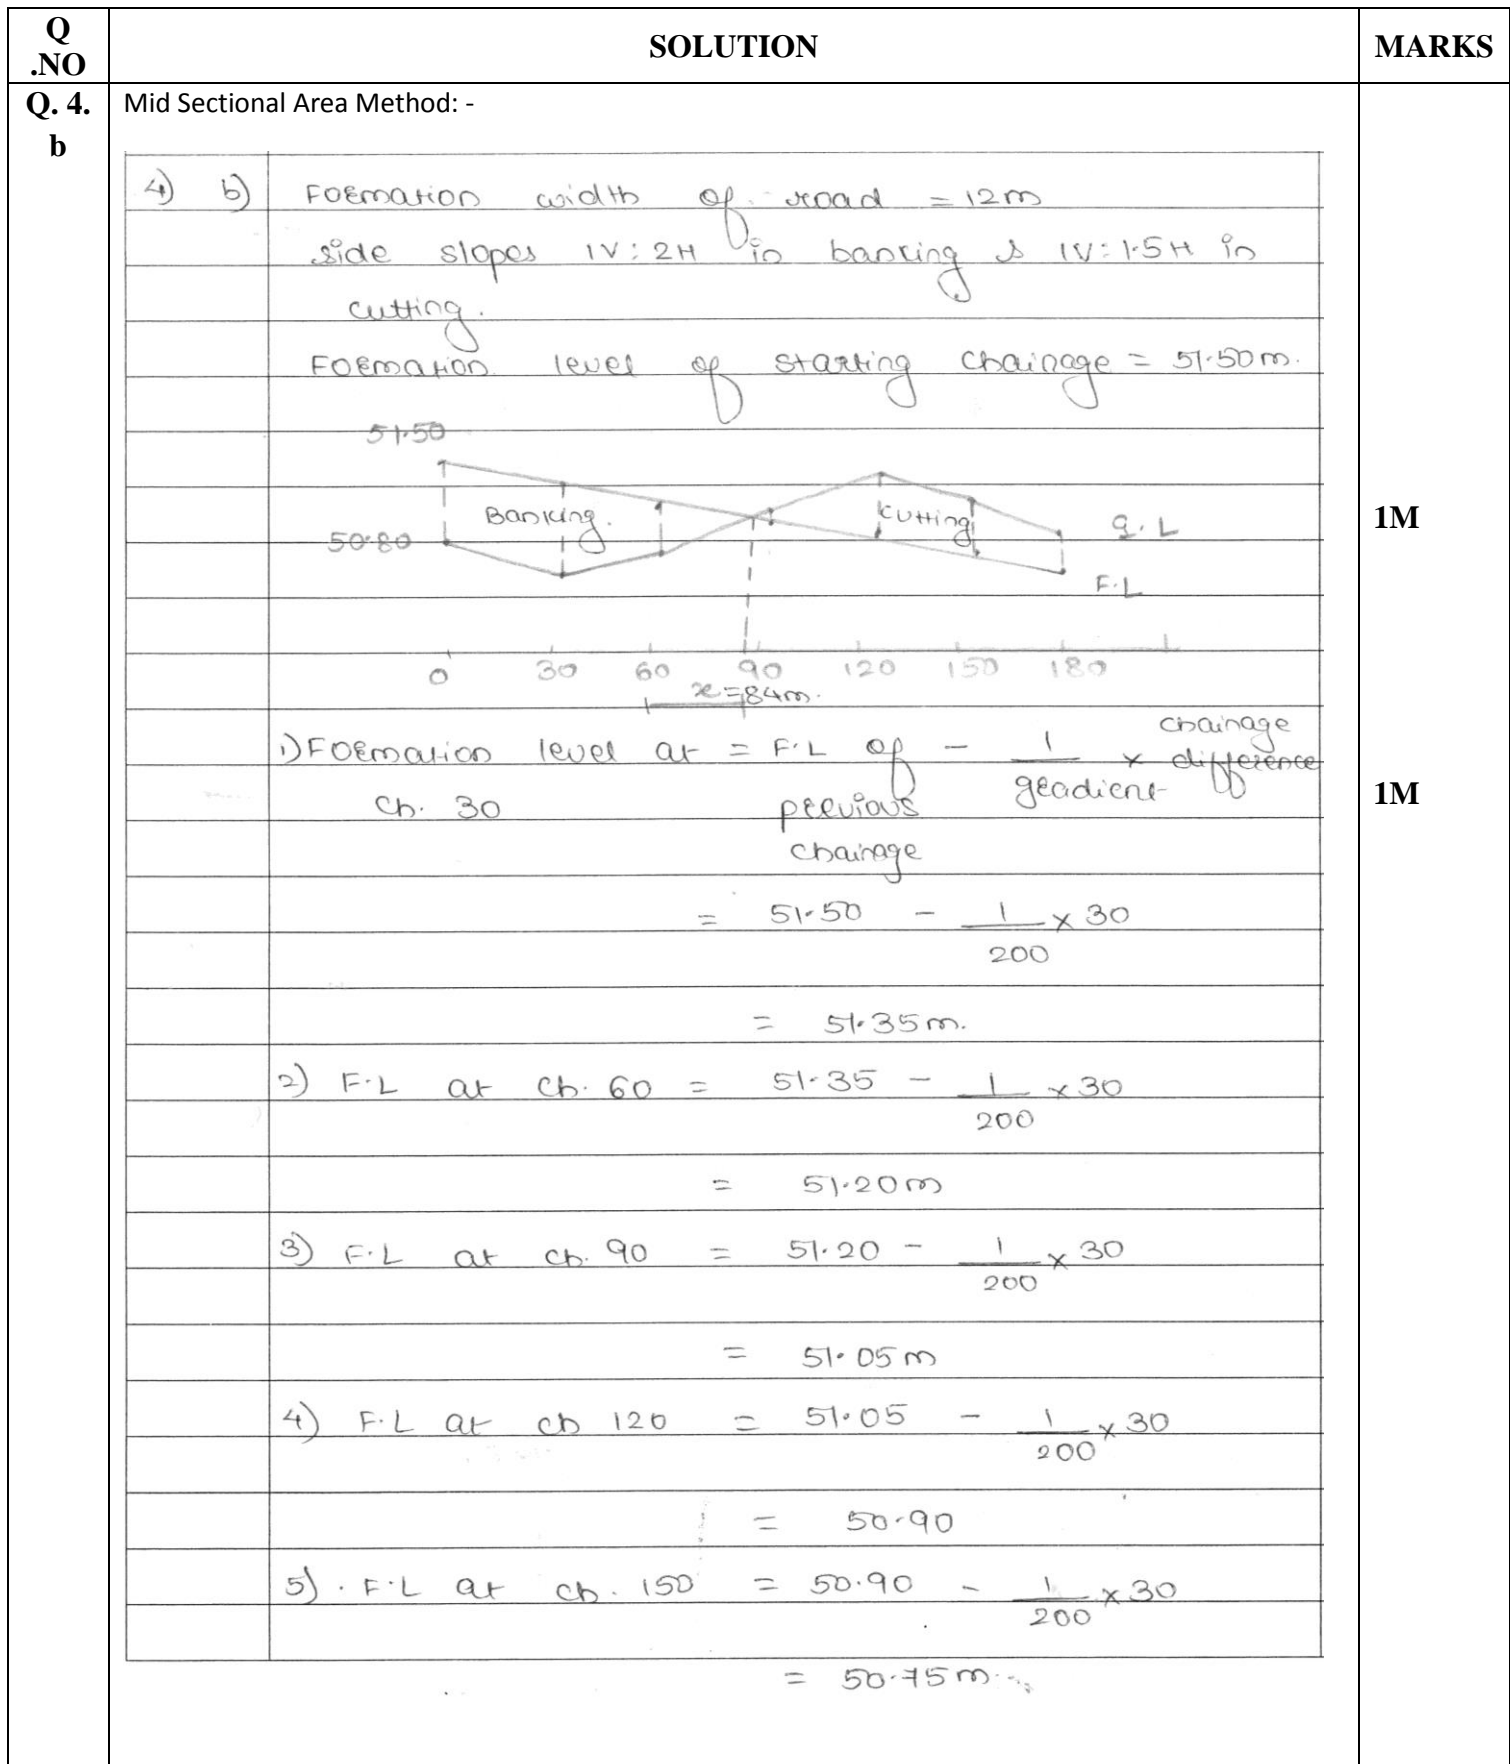 Q .NO SOLUTION MARKS
Q. 4. b Mid Sectional Area Method: -
4) b) Formation width of road = 12m
side slopes 1V:2H in banking & 1V:1.5H in
cutting.
Formation level of starting chainage = 51.50m.
51.50
Banking. Cutting G.L
50.80
F.L
1M
0 30 60 90 120 150 180
x=84m.
1) Formation level at ch. 30 = F.L of previous chainage - 1/gradient × chainage difference
1M
= 51.50 - 1/200 × 30
= 51.35m.
2) F.L at ch. 60 = 51.35 - 1/200 × 30
= 51.20m
3) F.L at ch. 90 = 51.20 - 1/200 × 30
= 51.05m
4) F.L at ch 120 = 51.05 - 1/200 × 30
= 50.90
5). F.L at ch. 150 = 50.90 - 1/200 × 30
= 50.75m.